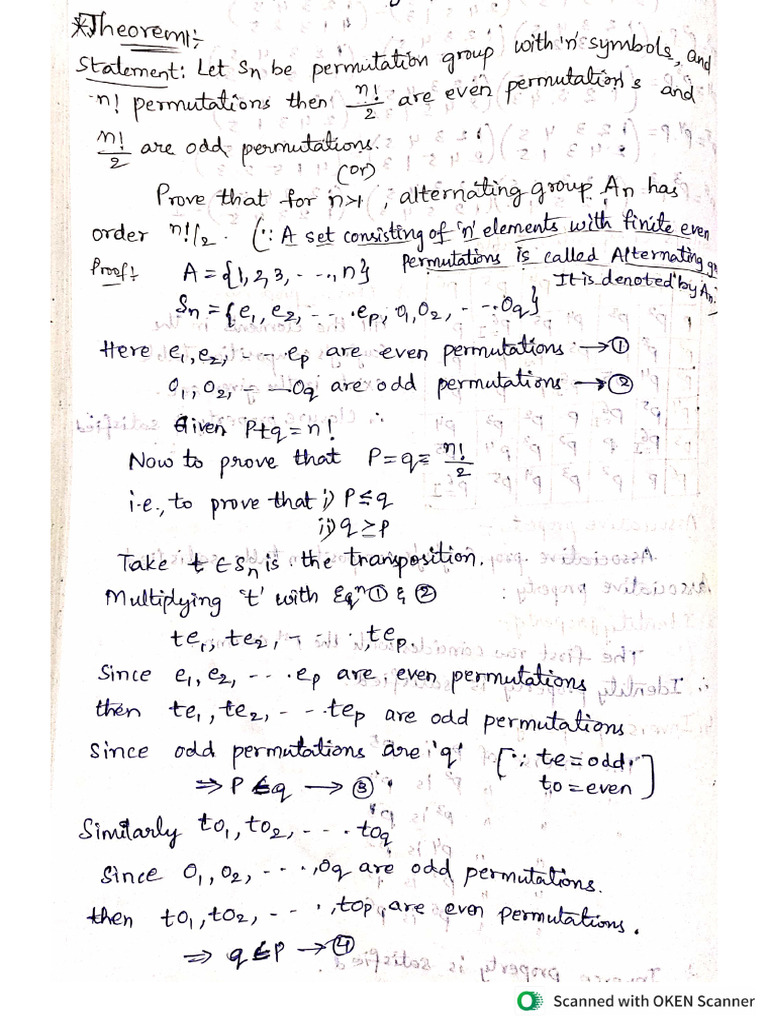 *Theorem:-
Statement: Let Sn be permutation group with 'n' symbols, and
n! permutations then n!/2 are even permutations and
n!/2 are odd permutations.
(or)
Prove that for n>1, alternating group An has
order n!/2. (∵ A set consisting of 'n' elements with finite even
Permutations is called Alternating
Proof: A = {1, 2, 3, - - .., n} It is denoted by An.
Sn = {e1, e2, - - - ep, o1, o2, - - - oq}
Here e1, e2, - - - ep are even permutations → ①
o1, o2, - - - oq are odd permutations → ②
Given P+q = n!
Now to prove that P = q = n!/2
i.e., to prove that i) P ≤ q
ii) q ≥ P
Take t ∈ Sn is the transposition.
Multiplying 't' with Eqn ① & ②
te1, te2, - - - , tep.
Since e1, e2, - - - ep are even permutations
then te1, te2, - - - tep are odd permutations
Since odd permutations are 'q' [∵ te = odd, to = even]
⇒ P ≤ q → ③
Similarly to1, to2, - - - toq
Since o1, o2, - - - , oq are odd permutations.
then to1, to2, - - - , top, are even permutations.
⇒ q ≤ P → ④
Scanned with OKEN Scanner